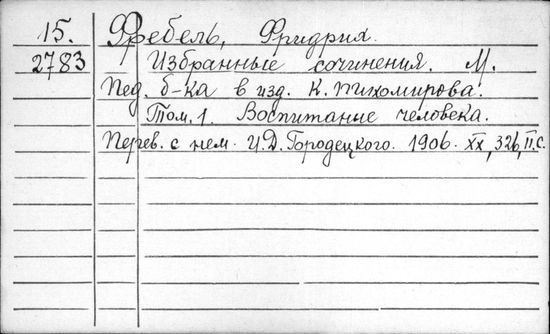 15. Фребель, Фридрих.
2783 Избранные сочинения. М.
Пед. б-ка в изд. К. Тихомирова.
Том. 1. Воспитание человека.
Перев. с нем. И.Д. Городецкого. 1906. XX, 326, II.с.